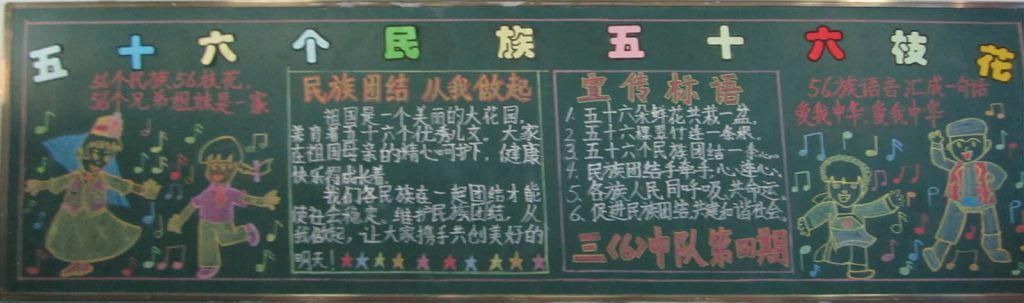 五十六个民族 五十六枝花
56个民族56枝花,
56个兄弟姐妹是一家
民族团结 从我做起
祖国是一个美丽的大花园,
美育着五十六个优秀儿女。大家
在祖国母亲的精心呵护下,健康
快乐得成长着。
我们各民族在一起团结才能
使社会稳定。维护民族团结,从
我做起,让大家携手共创美好的
明天!
宣传标语
1. 五十六朵鲜花共栽一盆。
2. 五十六棵翠竹连一条根。
3. 五十六个民族团结一条心。
4. 民族团结手牵手,心连心。
5. 各族人民同呼吸,共命运。
6. 促进民族团结共建和谐社会。
三〈6〉中队第四期
56族语言汇成一句话
爱我中华,爱我中华